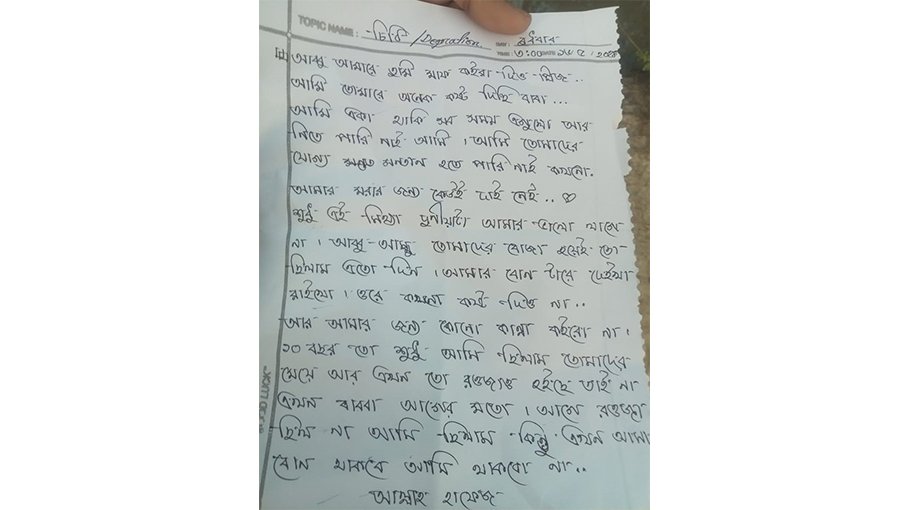 TOPIC NAME : চিঠি / Depression. DATE : রবিবার
TIME : ৩:০০
আব্বু আমারে তুমি মাফ কইরা দিও প্লিজ..
আমি তোমারে অনেক কষ্ট দিছি বাবা...
আমি একা থাকি সব সময় এগুলো আর
নিতে পারি নাই আমি । আমি তোমাদের
যোগ্য সন্তান হতে পারি নাই কখনো.
আমার মরার জন্য কেউই দাই নেই.. ♡
শুধু এই মিথ্যা দুনীয়াটা আমার ভালো লাগে
না । আব্বু-আম্মু তোমাদের বোজা হয়েই তো
ছিলাম এতো দিন । আমার বোন টারে দেইখা
রাইখো । ওরে কখনো কষ্ট দিও না..
আর আমার জন্য কোনো কান্না কইরো না ।
১০ বছর তো শুধু আমি ছিলাম তোমাদের
মেয়ে আর এখন তো রওজাও হইছে তাই না
এখন থাকবা আগের মতো । আগে রওজা
ছিল না আমি ছিলাম কিন্তু এখন আমার
বোন থাকবে আমি থাকবো না..
আল্লাহ হাফেজ